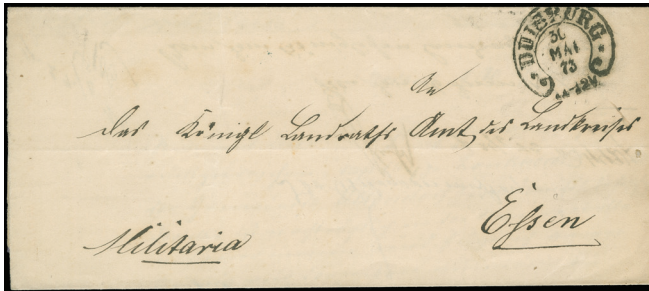 DUISBURG
30
MAI
73
11-12V
An
das Königl Landraths Amt des Landkreises
Essen
Militaria